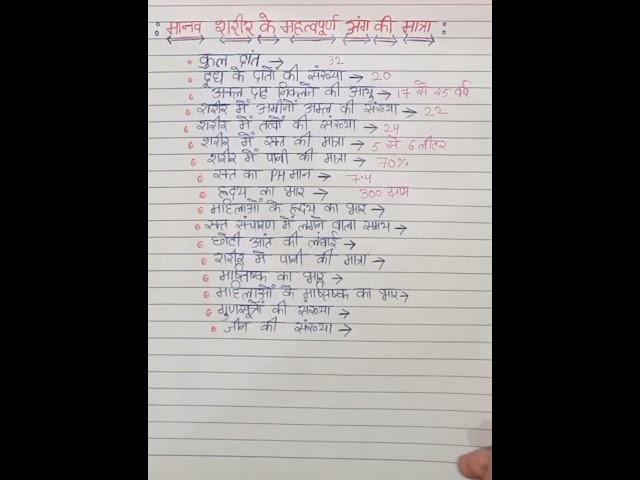 : मानव शरीर के महत्वपूर्ण अंग की मात्रा :
कुल दांत → 32
दूध के दांतों की संख्या → 20
अक्ल दाढ़ निकलने की आयु → 17 से 25 वर्ष
शरीर में अमीनों अम्ल की संख्या → 22
शरीर में तत्वों की संख्या → 24
शरीर में रक्त की मात्रा → 5 से 6 लीटर
शरीर में पानी की मात्रा → 70%
रक्त का PH मान → 7.4
ह्रदय का भार → 300 ग्राम
महिलाओं के ह्रदय का भार →
रक्त संचारण में लगने वाला समय →
छोटी आंत की लंबाई →
शरीर में पानी की मात्रा →
मष्तिष्क का भार →
महिलाओं के मष्तिष्क का भार →
गुणसूत्रों की संख्या →
जीन की संख्या →